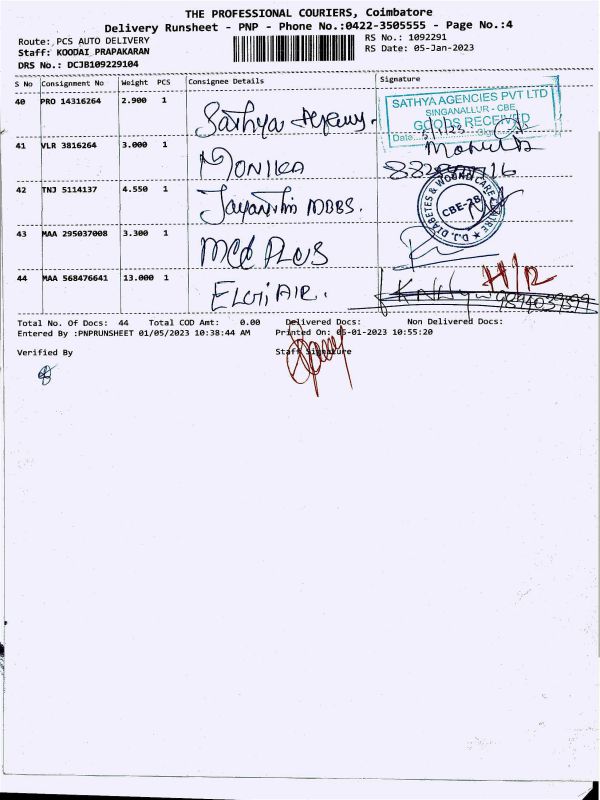 THE PROFESSIONAL COURIERS, Coimbatore
Delivery Runsheet - PNP - Phone No.:0422-3505555 - Page No.:4
Route: PCS AUTO DELIVERY
RS No.: 1092291
Staff: KOODAI PRAPAKARAN
RS Date: 05-Jan-2023
DRS No.: DCJB109229104
S No Consignment No Weight PCS Consignee Details Signature
40 PRO 14316264 2.900 1 Sathya
SATHYA AGENCIES PVT LTD
SINGANALLUR - CBE
GOODS RECEIVED
Date
41 VLR 3816264 3.000 1 MONIKA
42 TNJ 5114137 4.550 1 MBBS.
D.J. DIABETES & WOUND CARE CENTRE
CBE-28
43 MAA 295037008 3.300 1 PLUS
44 MAA 568476641 13.000 1 ELGI AIR.
H/R
Total No. Of Docs: 44 Total COD Amt: 0.00 Delivered Docs: Non Delivered Docs:
Entered By :PNPRUNSHEET 01/05/2023 10:38:44 AM Printed On: 05-01-2023 10:55:20
Verified By Staff Signature